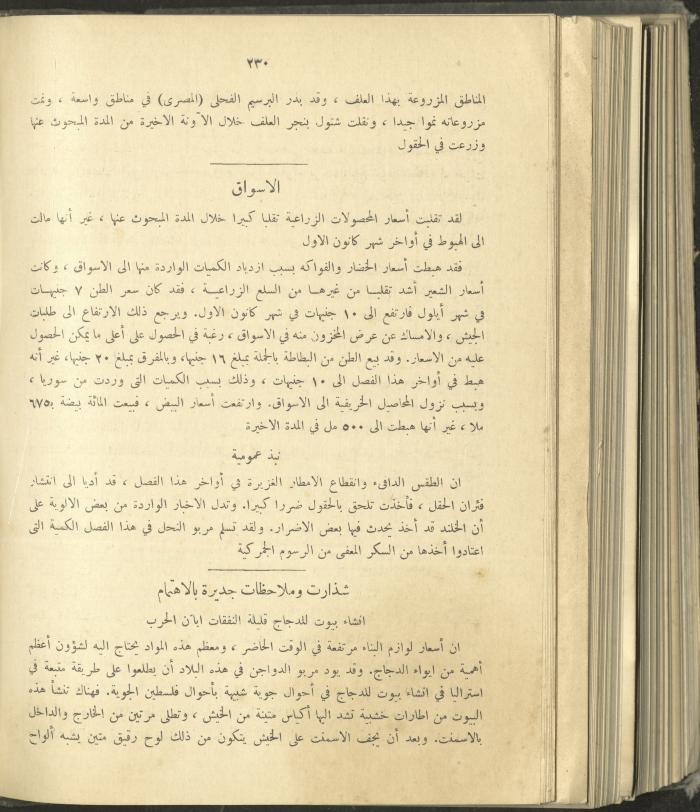 ٢٣٠
المناطق المزروعة بهذا العلف ، وقد بذر البرسيم الفحلي (المصرى) في مناطق واسعة ، ونمت
مزروعاته نموا جيدا ، ونقلت شتول بنجر العلف خلال الآونة الاخيرة من المدة المبحوث عنها
وزرعت في الحقول
الاسواق
لقد تقلبت أسعار المحصولات الزراعية تقلبا كبيرا خلال المدة المبحوث عنها ، غير أنها مالت
الى الهبوط في أواخر شهر كانون الاول
فقد هبطت أسعار الخضار والفواكه بسبب ازدياد الكميات الواردة منها الى الاسواق ، وكانت
أسعار الشعير أشد تقلبا من غيرها من السلع الزراعية ، فقد كان سعر الطن ٧ جنيهات
في شهر أيلول فارتفع الى ١٠ جنيهات في شهر كانون الاول. ويرجع ذلك الارتفاع الى طلبات
الجيش ، والامساك عن عرض المخزون منه في الاسواق ، رغبة في الحصول على أعلى ما يمكن الحصول
عليه من الاسعار. وقد بيع الطن من البطاطة بالجملة بمبلغ ١٦ جنيها، وبالمفرق بمبلغ ٢٠ جنيها، غير أنه
هبط في أواخر هذا الفصل الى ١٠ جنيهات ، وذلك بسبب الكميات التى وردت من سوريا ،
وبسبب نزول المحاصيل الخريفية الى الاسواق. وارتفعت أسعار البيض ، فبيعت المائة بيضة بـ٦٧٥
ملا ، غير أنها هبطت الى ٥٠٠ مل في المدة الاخيرة
نبذ عمومية
ان الطقس الدافىء وانقطاع الامطار الغزيرة في أواخر هذا الفصل ، قد أديا الى انتشار
فئران الحقل ، فأخذت تلحق بالحقول ضررا كبيرا. وتدل الاخبار الواردة من بعض الالوية على
أن الخلند قد أخذ يحدث فيها بعض الاضرار. ولقد تسلم مربو النحل في هذا الفصل الكمية التى
اعتادوا أخذها من السكر المعفى من الرسوم الجمركية
شذارت وملاحظات جديرة بالاهتمام
انشاء بيوت للدجاج قليلة النفقات ابان الحرب
ان أسعار لوازم البناء مرتفعة في الوقت الحاضر ، ومعظم هذه المواد يحتاج اليه لشؤون أعظم
أهمية من ايواء الدجاج. وقد يود مربو الدواجن في هذه البلاد أن يطلعوا على طريقة متبعة في
استراليا في انشاء بيوت للدجاج في أحوال جوية شبيهة بأحوال فلسطين الجوية. فهناك تنشأ هذه
البيوت من اطارات خشبية تشد اليها أكياس متينة من الخيش ، وتطلى مرتين من الخارج والداخل
بالاسمنت. وبعد أن يجف الاسمنت على الخيش يتكون من ذلك لوح رقيق متين يشبه ألواح